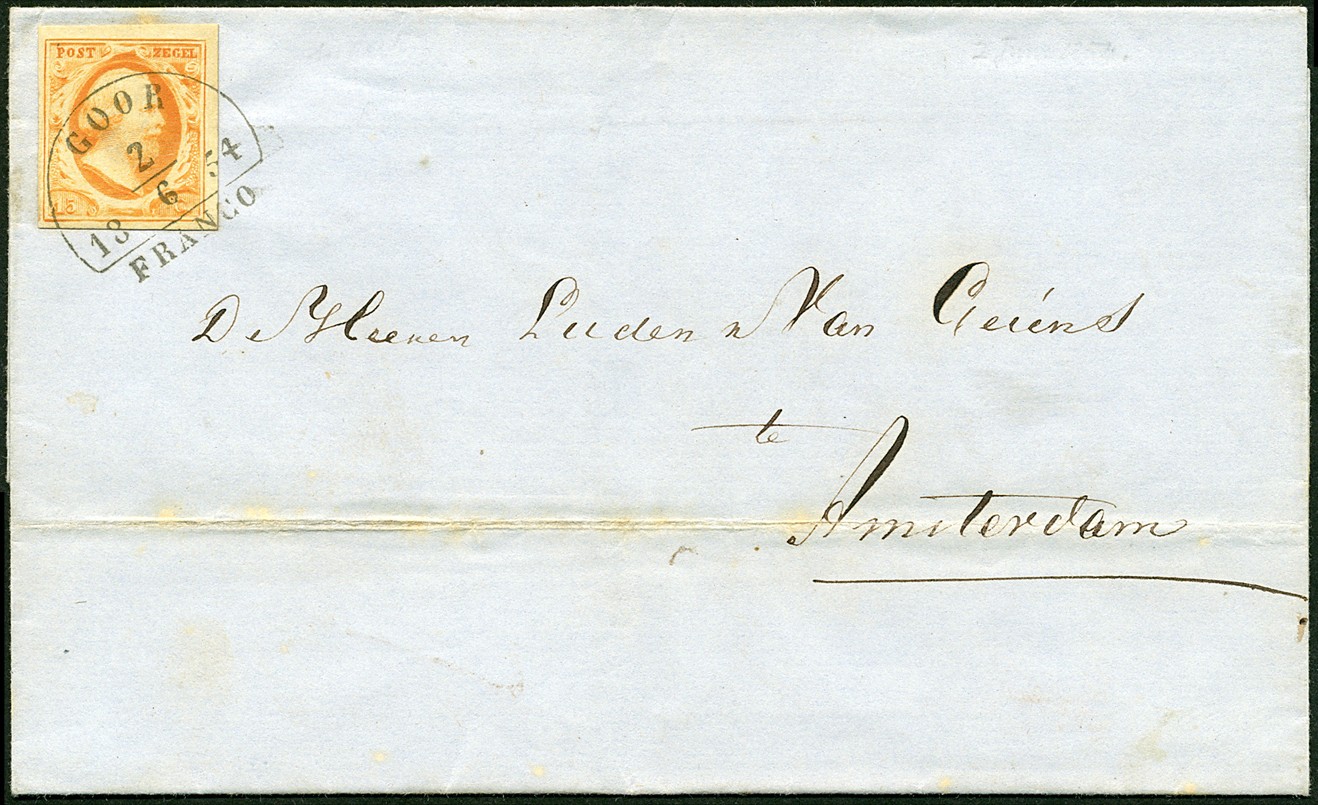 POST ZEGEL
GOOR
2
6
18 54
FRANCO
15 C
De Heeren Luden & Van Geúns
te
Amsterdam